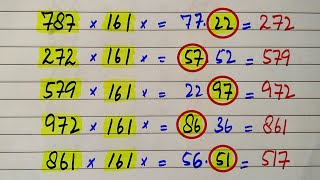 787 × 161 × = 77.22 = 272
272 × 161 × = 57 52 = 579
579 × 161 × = 22 97 = 972
972 × 161 × = 86 36 = 861
861 × 161 × = 56.51 = 517